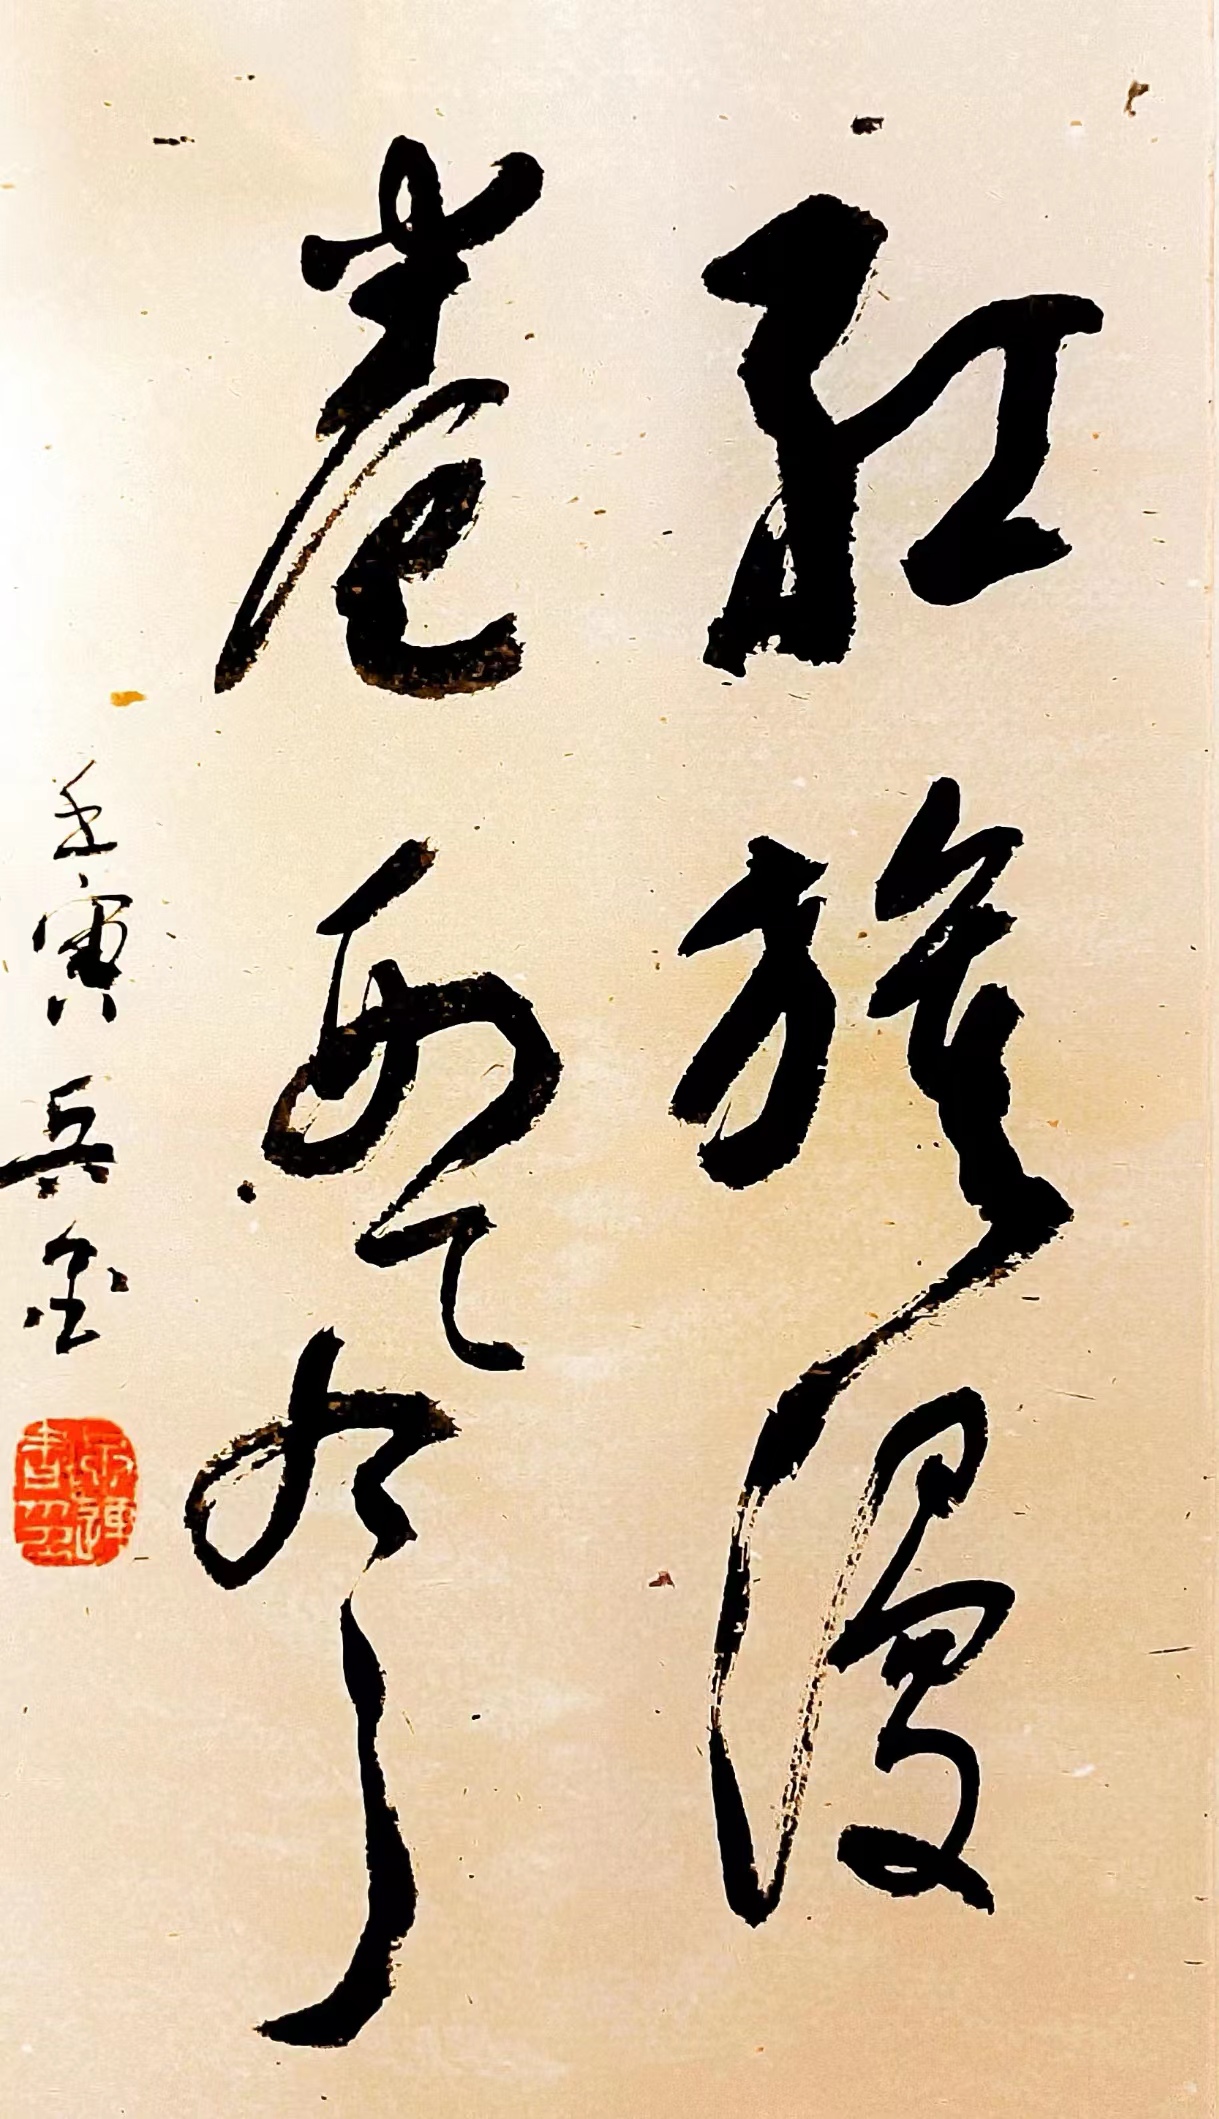 红旗漫
卷西风
壬寅兵